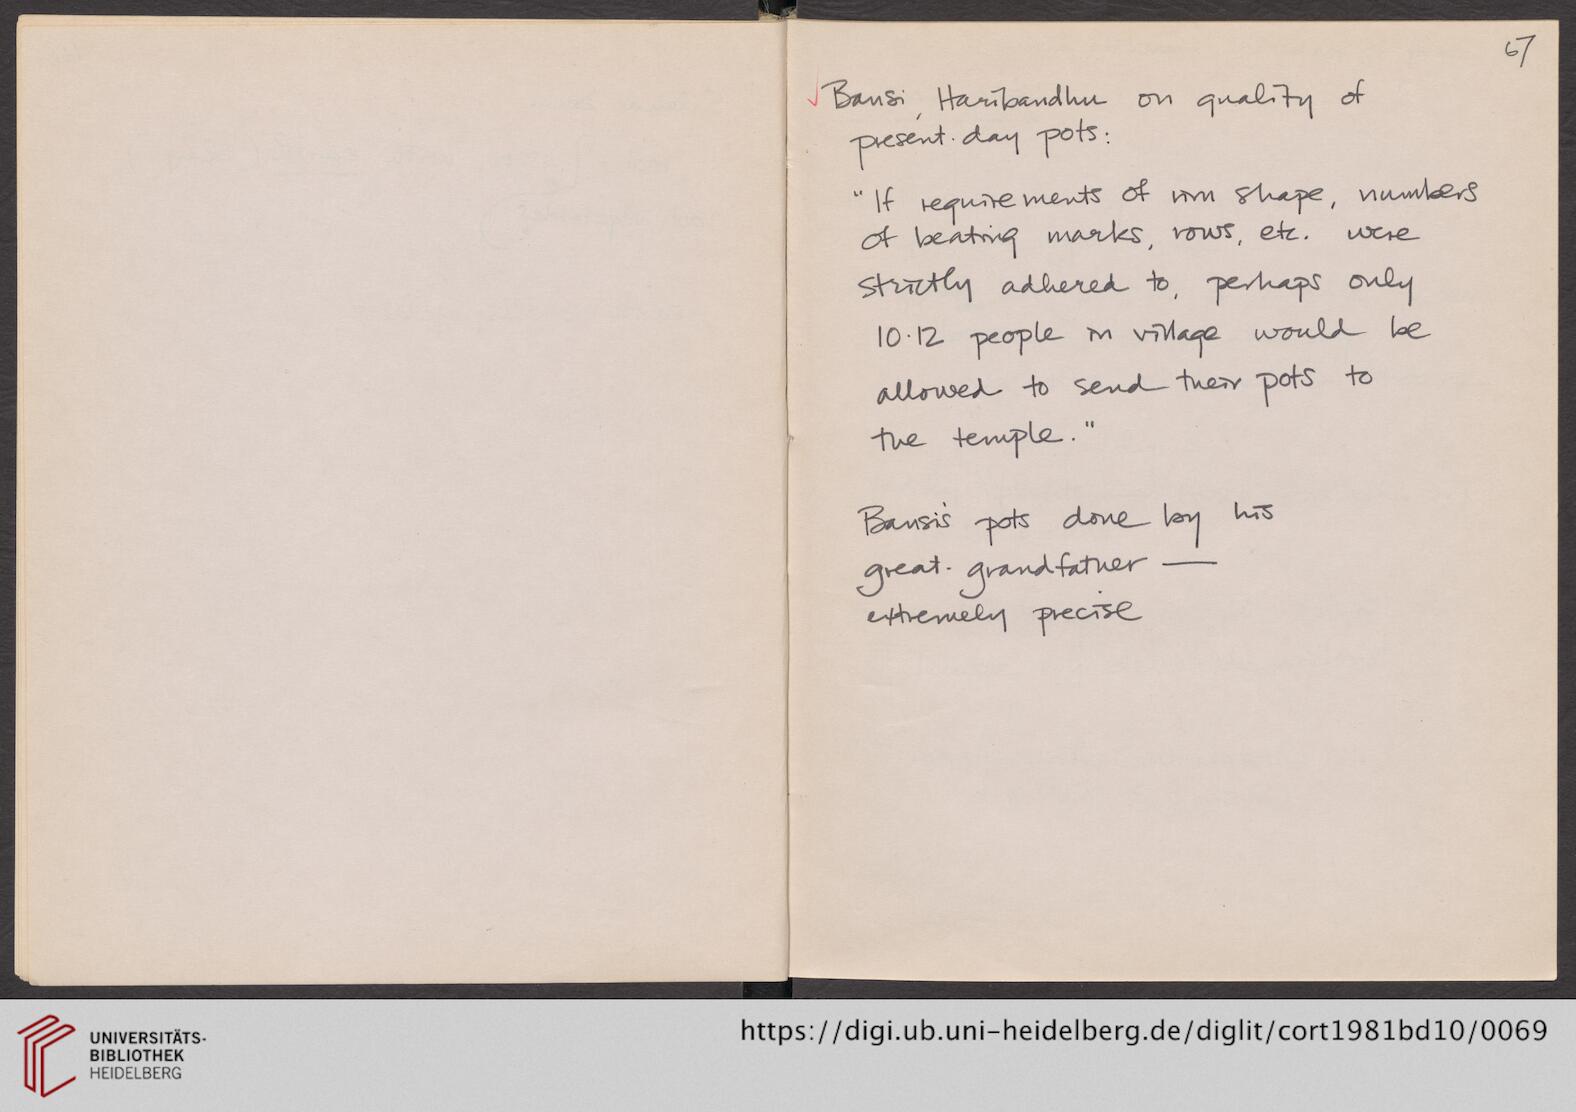 67
✓ Bansi, Haribandhu on quality of
present-day pots:
"If requirements of rim shape, numbers
of beating marks, rows, etc. were
strictly adhered to, perhaps only
10-12 people in village would be
allowed to send their pots to
the temple."
Bansi's pots done by his
great-grandfather —
extremely precise
UNIVERSITÄTS-
BIBLIOTHEK
HEIDELBERG
https://digi.ub.uni-heidelberg.de/diglit/cort1981bd10/0069